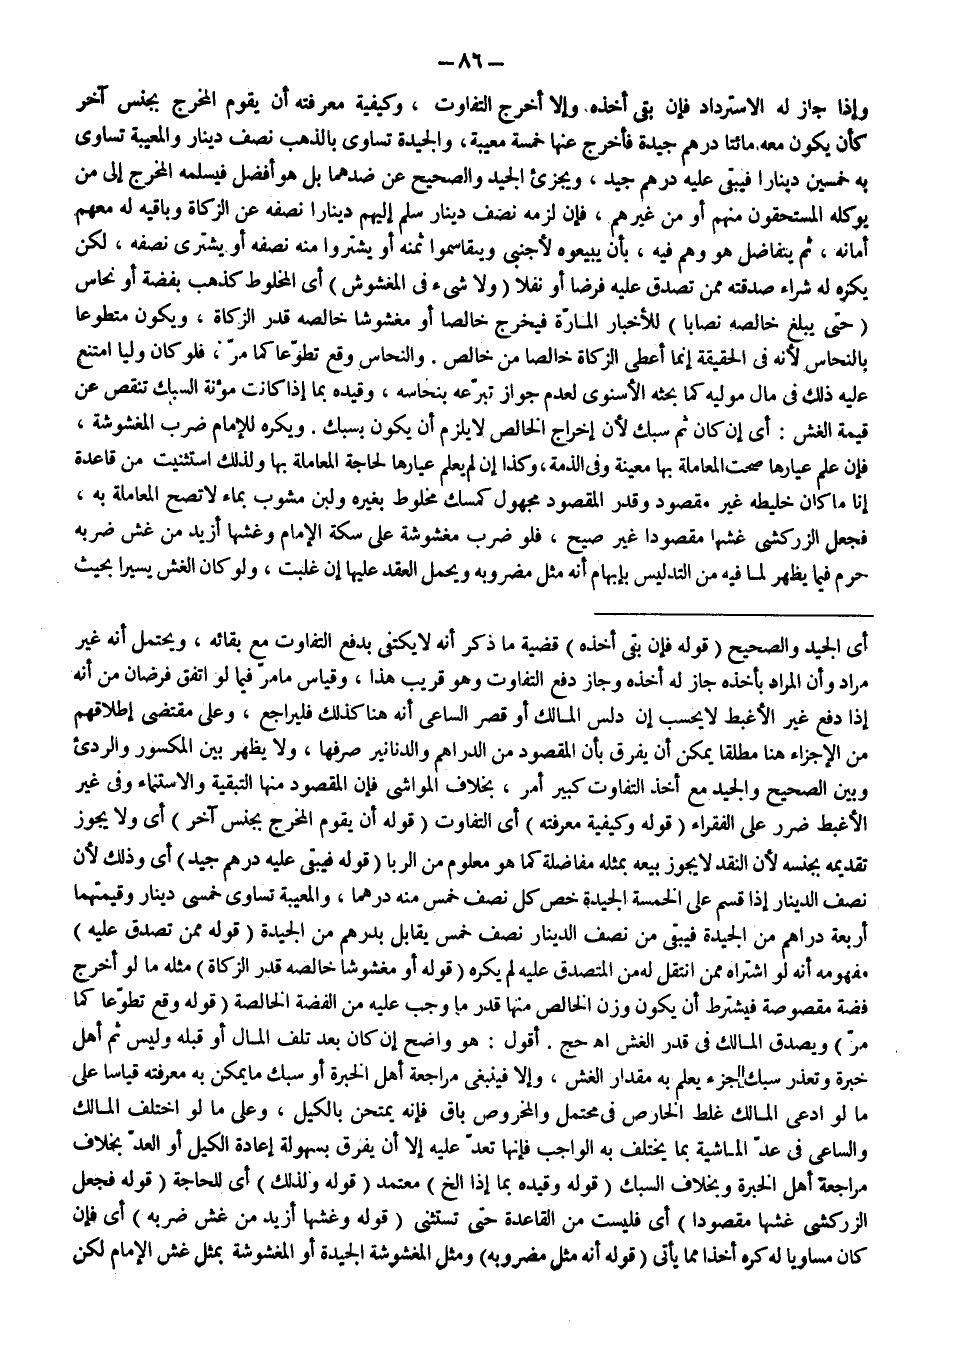 — ٨٦ —
وإذا جاز له الاسترداد فإن بقى أخذه. وإلا أخرج التفاوت ، وكيفية معرفته أن يقوم المخرج بجنس آخر
كأن يكون معه مائتا درهم جيدة فأخرج عنها خمسة معيبة، والجيدة تساوى بالذهب نصف دينار والمعيبة تساوى
به خمسين دينارا فيبقى عليه درهم جيد ، ويجزئ الجيد والصحيح عن ضدهما بل هو أفضل فيسلمه المخرج إلى من
يوكله المستحقون منهم أو من غيرهم ، فإن لزمه نصف دينار سلم إليهم دينارا نصفه عن الزكاة وباقيه له معهم
أمانه ، ثم يتفاضل هو وهم فيه ، بأن يبيعوه لأجنبى ويتقاسموا ثمنه أو يشتروا منه نصفه أو يشترى نصفه ، لكن
يكره له شراء صدقته ممن تصدق عليه فرضا أو نفلا ( ولا شىء فى المغشوش ) أى المخلوط كذهب بفضة أو نحاس
( حتى يبلغ خالصه نصابا ) للأخبار المارّة فيخرج خالصا أو مغشوشا خالصه قدر الزكاة ، ويكون متطوعا
بالنحاس لأنه فى الحقيقة إنما أعطى الزكاة خالصا من خالص . والنحاس وقع تطوّعا كما مرّ ، فلو كان وليا امتنع
عليه ذلك فى مال موليه كما بحثه الأسنوى لعدم جواز تبرّعه بنحاسه ، وقيده بما إذا كانت مؤنة السبك تنقص عن
قيمة الغش : أى إن كان ثم سبك لأن إخراج الخالص لايلزم أن يكون بسبك . ويكره للإمام ضرب المغشوشة ،
فإن علم عيارها صحت المعاملة بها معينة وفى الذمة، وكذا إن لم يعلم عيارها لحاجة المعاملة بها ولذلك استثنيت من قاعدة
إنا ما كان خليطه غير مقصود وقدر المقصود مجهول كمسك مخلوط بغيره ولبن مشوب بماء لاتصح المعاملة به ،
فجعل الزركشى غشها مقصودا غير صحيح ، فلو ضرب مغشوشة على سكة الإمام وغشها أزيد من غش ضربه
حرم فيما يظهر لما فيه من التدليس بإيهام أنه مثل مضروبه ويحمل العقد عليها إن غلبت ، ولو كان الغش يسيرا بحيث
أى الجيد والصحيح ( قوله فإن بقى أخذه ) قضية ما ذكر أنه لايكتفى بدفع التفاوت مع بقائه ، ويحتمل أنه غير
مراد وأن المراد بأخذه جاز له أخذه وجاز دفع التفاوت وهو قريب هذا ، وقياس مامرّ فيما لو اتفق فرضان من أنه
إذا دفع غير الأغبط لايحسب إن دلس المالك أو قصر الساعى أنه هنا كذلك فليراجع ، وعلى مقتضى إطلاقهم
من الإجزاء هنا مطلقا يمكن أن يفرق بأن المقصود من الدراهم والدنانير صرفها ، ولا يظهر بين المكسور والردئ
وبين الصحيح والجيد مع أخذ التفاوت كبير أمر ، بخلاف المواشى فإن المقصود منها التبقية والاستنماء وفى غير
الأغبط ضرر على الفقراء ( قوله وكيفية معرفته ) أى التفاوت ( قوله أن يقوم المخرج بجنس آخر ) أى ولا يجوز
تقديمه بجنسه لأن النقد لايجوز بيعه بمثله مفاضلة كما هو معلوم من الربا ( قوله فيبقى عليه درهم جيد ) أى وذلك لأن
نصف الدينار إذا قسم على الخمسة الجيدة خص كل نصف خمس منه درهما ، والمعيبة تساوى خمسى دينار وقيمتهما
أربعة دراهم من الجيدة فيبقى من نصف الدينار نصف خمس يقابل بدرهم من الجيدة ( قوله ممن تصدق عليه )
مفهومه أنه لو اشتراه ممن انتقل له من المتصدق عليه لم يكره ( قوله أو مغشوشا خالصه قدر الزكاة ) مثله ما لو أخرج
فضة مقصوصة فيشترط أن يكون وزن الخالص منها قدر ما وجب عليه من الفضة الخالصة ( قوله وقع تطوّعا كما
مرّ ) ويصدق المالك فى قدر الغش اه حج . أقول : هو واضح إن كان بعد تلف المال أو قبله وليس ثم أهل
خبرة وتعذر سبك الجزء يعلم به مقدار الغش ، وإلا فينبغى مراجعة أهل الخبرة أو سبك مايمكن به معرفته قياسا على
ما لو ادعى المالك غلط الخارص فى محتمل والمخروص باق فإنه يمتحن بالكيل ، وعلى ما لو اختلف المالك
والساعى فى عدّ الماشية بما يختلف به الواجب فإنها تعدّ عليه إلا أن يفرق بسهولة إعادة الكيل أو العدّ بخلاف
مراجعة أهل الخبرة وبخلاف السبك ( قوله وقيده بما إذا الخ ) معتمد ( قوله ولذلك ) أى للحاجة ( قوله فجعل
الزركشى غشها مقصودا ) أى فليست من القاعدة حتى تستثنى ( قوله وغشها أزيد من غش ضربه ) أى فإن
كان مساويا له كره أخذا مما يأتى ( قوله أنه مثل مضروبه) ومثل المغشوشة الجيدة أو المغشوشة بمثل غش الإمام لكن